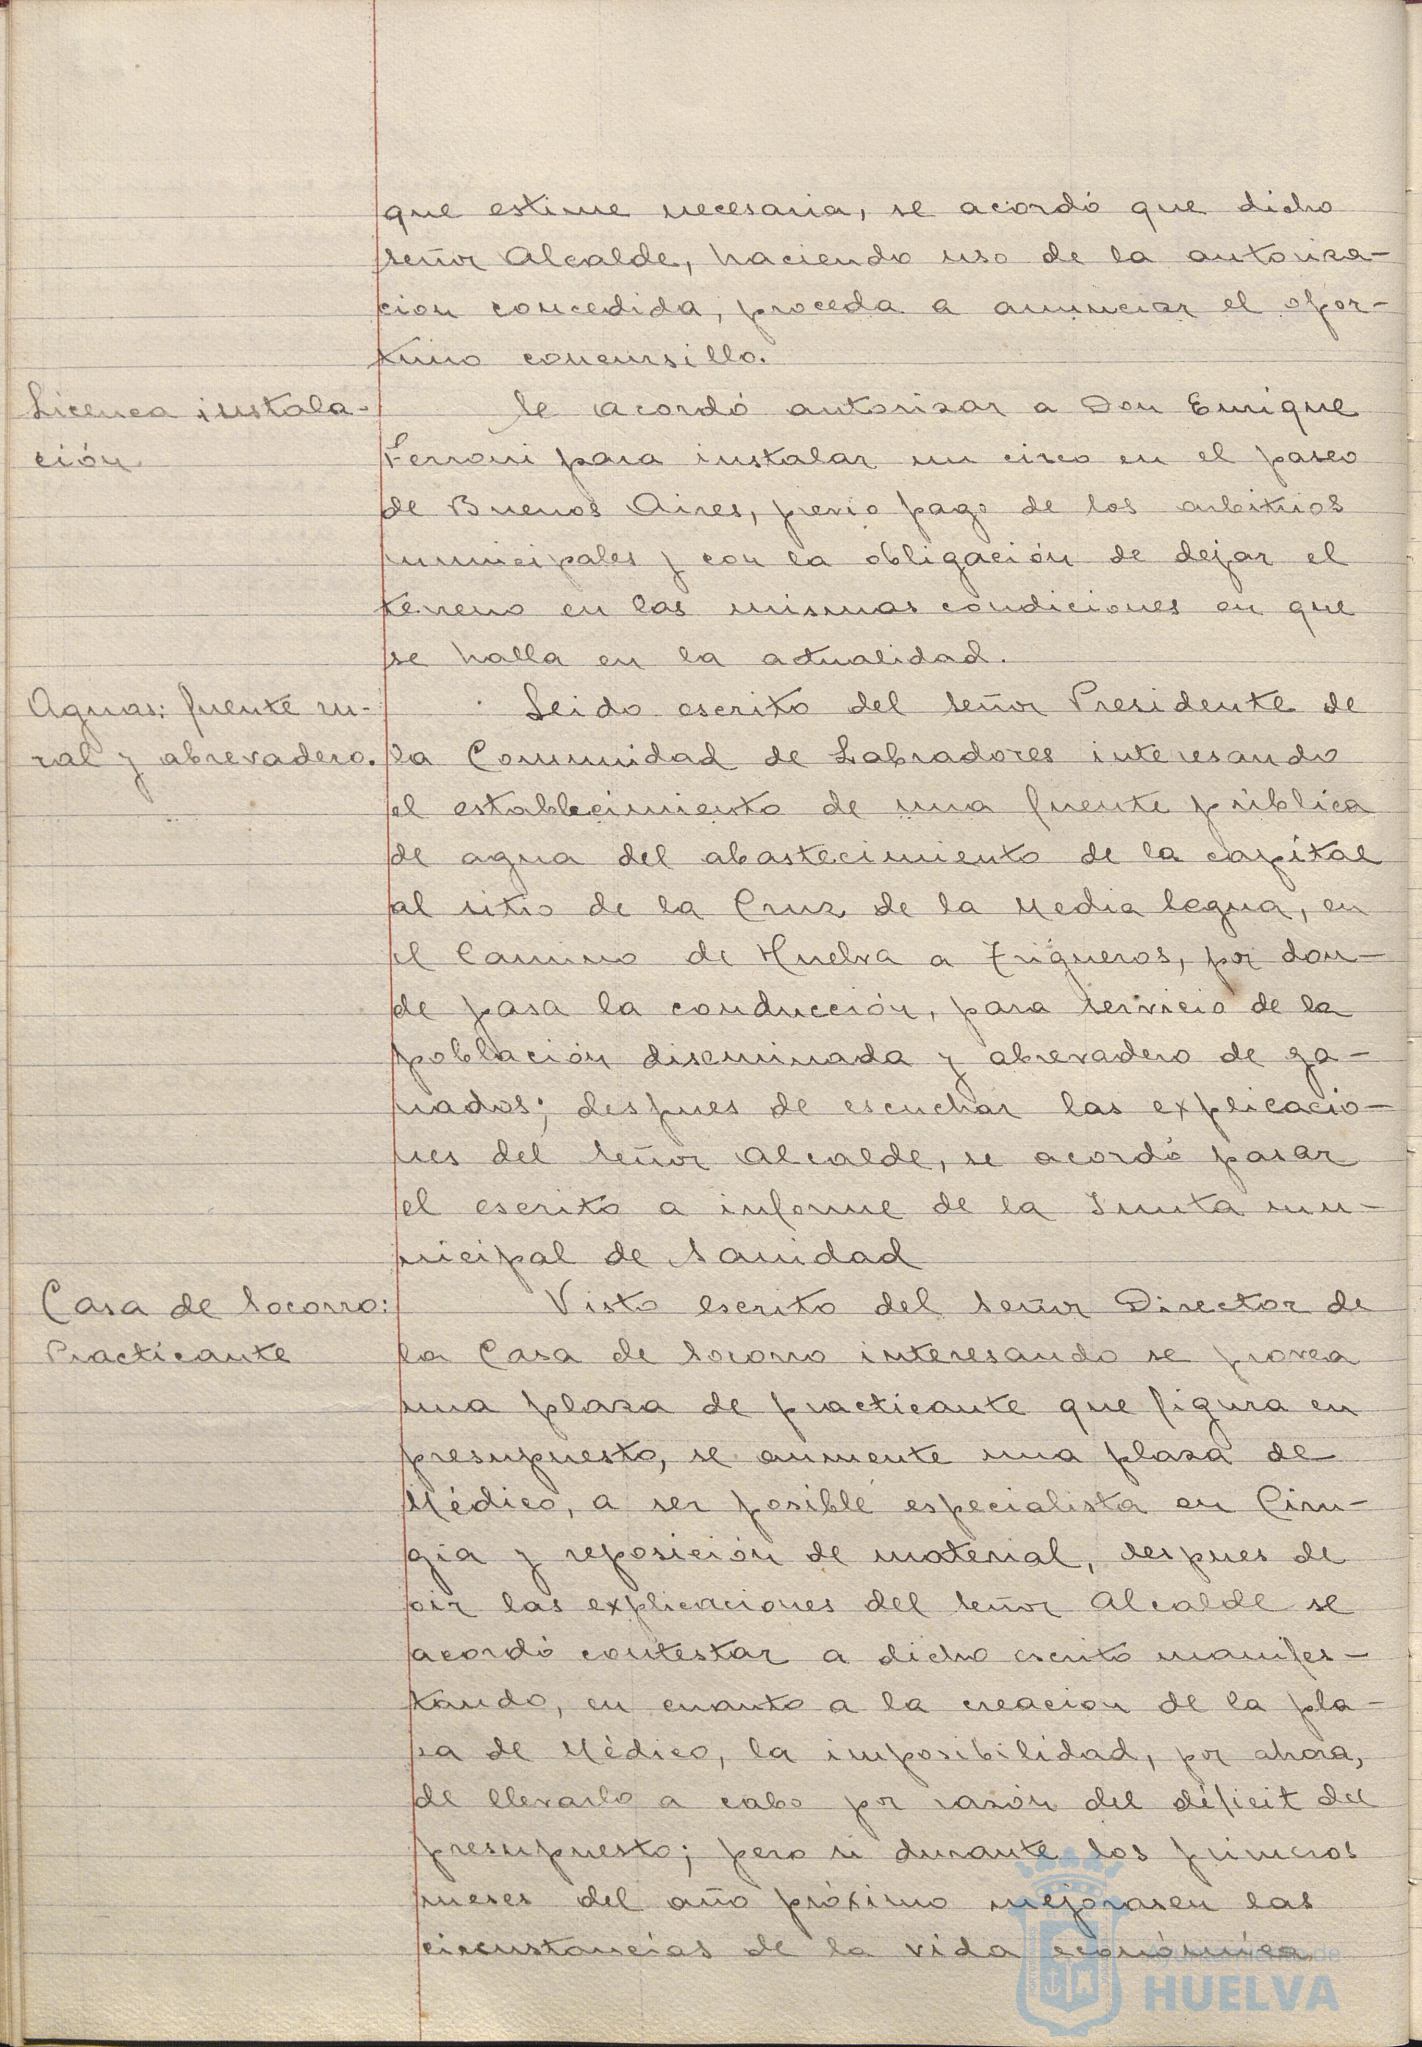 que estime necesaria, se acordó que dicho
señor Alcalde, haciendo uso de la autoriza-
cion concedida, proceda a anunciar el opor-
tuno concursillo.
Licenca instala-
ción
Se acordó autorizar a Don Enrique
Ferroni para instalar un circo en el paseo
de Buenos Aires, previo pago de los arbitrios
municipales y con la obligación de dejar el
terreno en las mismas condiciones en que
se halla en la actualidad.
Aguas: fuente ru-
ral y abrevadero.
Leido escrito del Señor Presidente de
la Comunidad de Labradores interesando
el establecimiento de una fuente pública
de agua del abastecimiento de la capital
al sitio de la Cruz de la Media legua, en
el Camino de Huelva a Trigueros, por don-
de pasa la conducción, para servicio de la
población diseminada y abrevadero de ga-
nados; despues de escuchar las explicacio-
nes del Señor Alcalde, se acordó pasar
el escrito a informe de la Junta mu-
nicipal de Sanidad
Casa de Socorro:
Practicante
Visto escrito del Señor Director de
la Casa de Socorro interesando se provea
una plaza de practicante que figura en
presupuesto, se aumente una plaza de
Médico, a ser posible especialista en Ciru-
gia y reposición de material, despues de
oir las explicaciones del Señor Alcalde se
acordó contestar a dicho escrito manifes-
tando, en cuanto a la creacion de la pla-
za de Médico, la imposibilidad, por ahora,
de llevarlo a cabo por razón del déficit del
presupuesto; pero si durante los primeros
meses del año próximo mejorasen las
circustancias de la vida económica
Ayuntamiento de
HUELVA